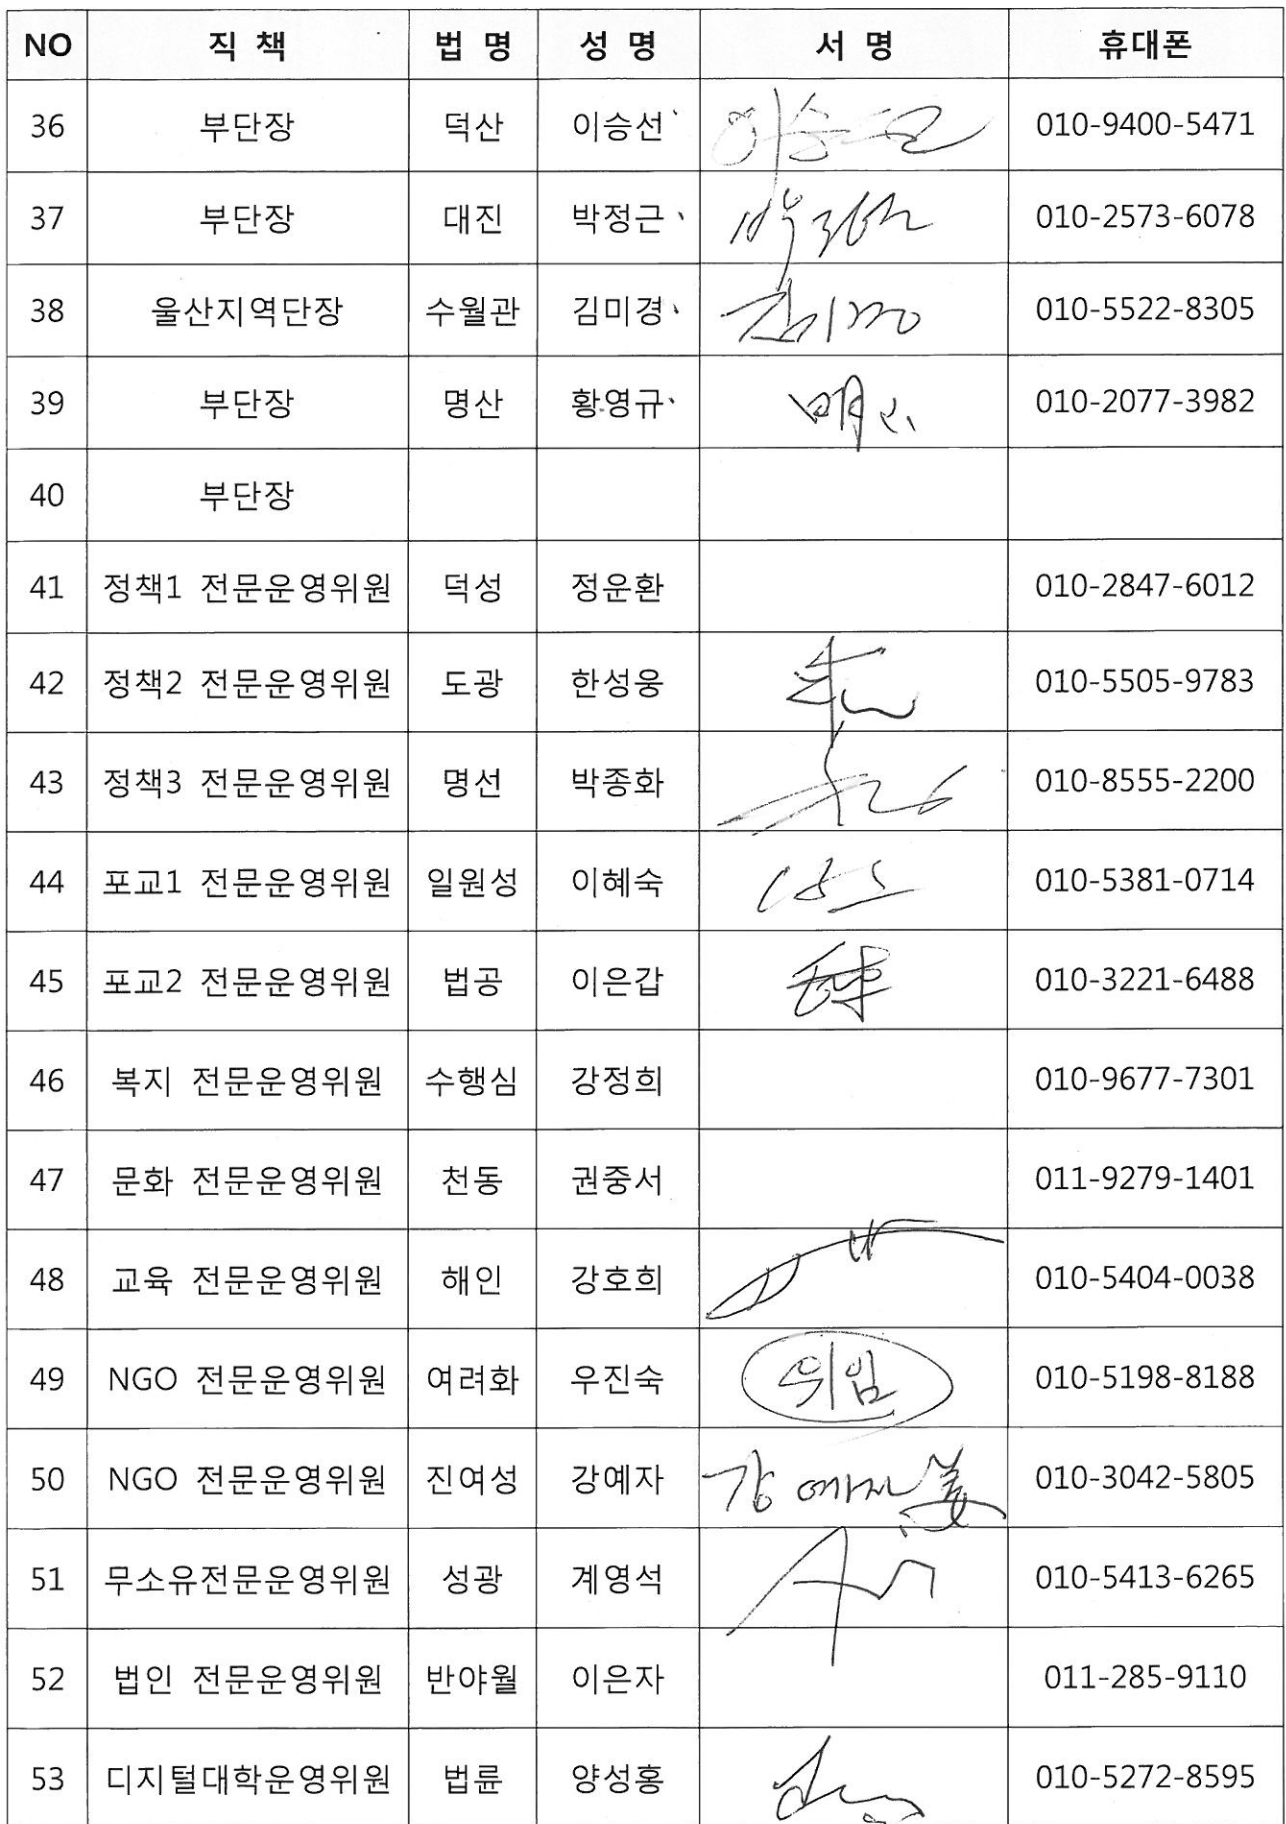 NO 직 책 법 명 성 명 서 명 휴대폰
36 부단장 덕산 이승선 010-9400-5471
37 부단장 대진 박정근 010-2573-6078
38 울산지역단장 수월관 김미경 010-5522-8305
39 부단장 명산 황영규 010-2077-3982
40 부단장
41 정책1 전문운영위원 덕성 정운환 010-2847-6012
42 정책2 전문운영위원 도광 한성웅 010-5505-9783
43 정책3 전문운영위원 명선 박종화 010-8555-2200
44 포교1 전문운영위원 일원성 이혜숙 010-5381-0714
45 포교2 전문운영위원 법공 이은갑 010-3221-6488
46 복지 전문운영위원 수행심 강정희 010-9677-7301
47 문화 전문운영위원 천동 권중서 011-9279-1401
48 교육 전문운영위원 해인 강호희 010-5404-0038
49 NGO 전문운영위원 여려화 우진숙 위임 010-5198-8188
50 NGO 전문운영위원 진여성 강예자 강예자 010-3042-5805
51 무소유전문운영위원 성광 계영석 010-5413-6265
52 법인 전문운영위원 반야월 이은자 011-285-9110
53 디지털대학운영위원 법륜 양성홍 010-5272-8595